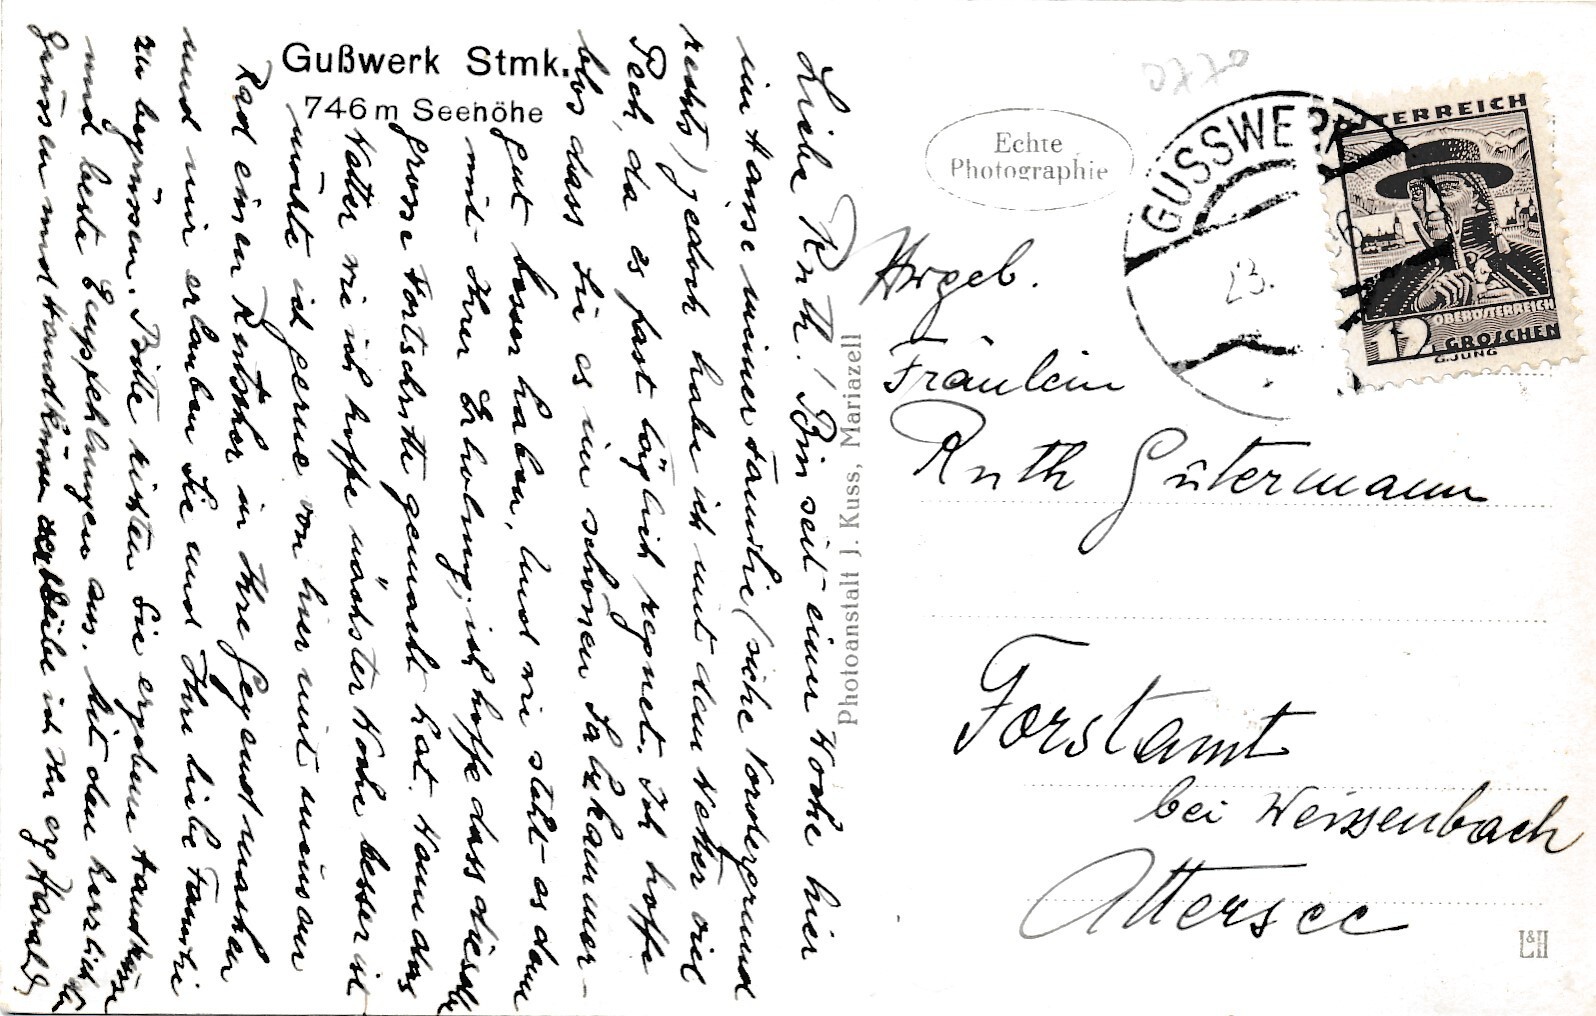 Gußwerk Stmk.
746 m Seehöhe
Liebe Ruth! Bin seit einer Woche hier
im Hause meiner Familie (siehe Vordergrund
rechts) jedoch habe ich mit dem Wetter viel
Pech, da es fast täglich regnet. Ich hoffe
blos dass Sie es im schönen Salzkammer-
gut besser haben, und wie steht es denn
mit Ihrer Erholung, ich hoffe dass dieselbe
grosse Fortschritte gemacht hat. Wenn das
Wetter wie ich hoffe nächster Woche besser ist
möchte ich gerne von hier mit meinem
Rad einen Rutscher in Ihre Gegend machen
und mir erlauben Sie und Ihre liebe Familie
zu begrüssen. Bitte richten Sie ergebene Handküsse
und beste Empfehlungen aus. Mit den herzlichsten
Grüssen und Handküssen verbleibe ich Ihr erg. Harald
Photoanstalt J. Kuss, Mariazell
Echte
Photographie
GUSSWERK
23.
ÖSTERREICH
OBERÖSTERREICH
12 GROSCHEN
G.JUNG
Fräulein
Ruth Gütermann
Forstamt
bei Weissenbach
Attersee
L&H